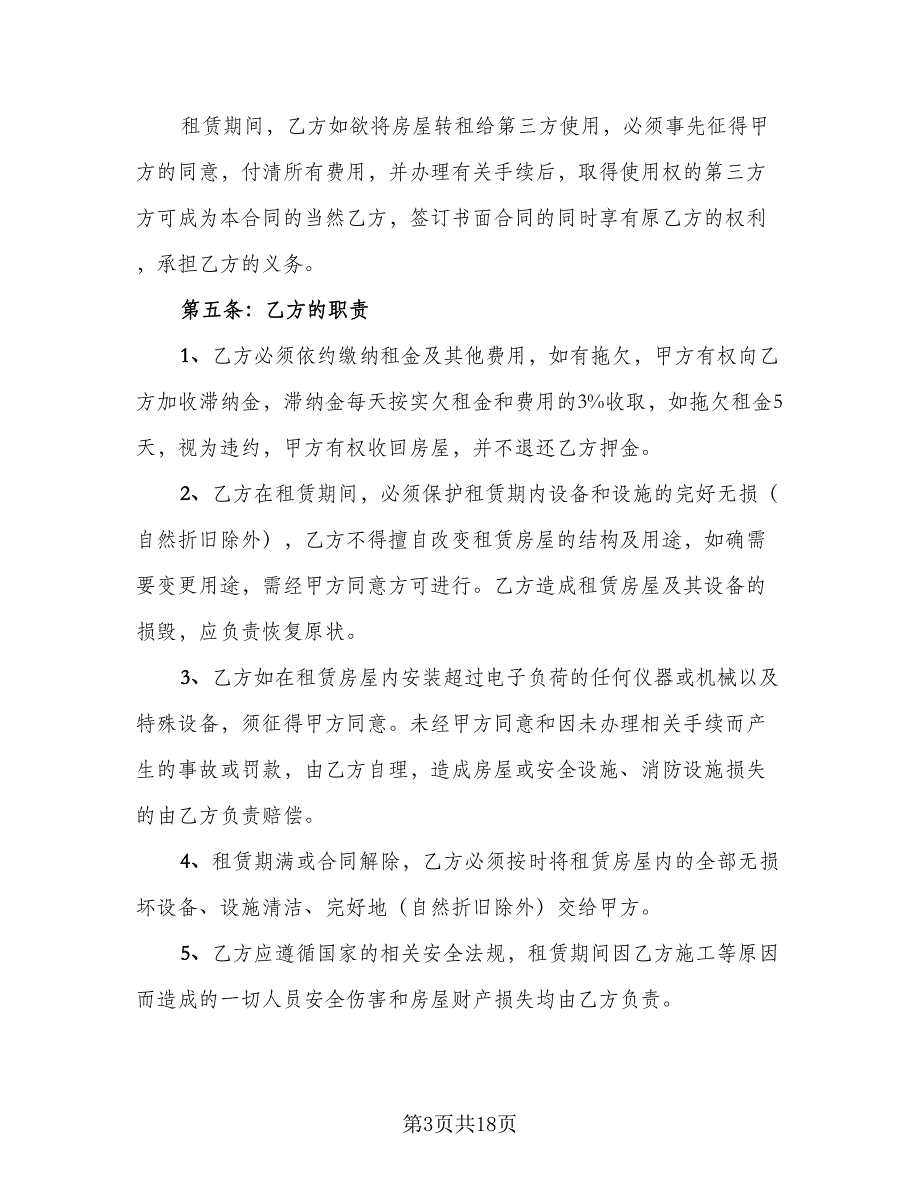 租赁期间，乙方如欲将房屋转租给第三方使用，必须事先征得甲
方的同意，付清所有费用，并办理有关手续后，取得使用权的第三方
方可成为本合同的当然乙方，签订书面合同的同时享有原乙方的权利
，承担乙方的义务。
第五条：乙方的职责
1、乙方必须依约缴纳租金及其他费用，如有拖欠，甲方有权向乙
方加收滞纳金，滞纳金每天按实欠租金和费用的3%收取，如拖欠租金5
天，视为违约，甲方有权收回房屋，并不退还乙方押金。
2、乙方在租赁期间，必须保护租赁期内设备和设施的完好无损（
自然折旧除外），乙方不得擅自改变租赁房屋的结构及用途，如确需
要变更用途，需经甲方同意方可进行。乙方造成租赁房屋及其设备的
损毁，应负责恢复原状。
3、乙方如在租赁房屋内安装超过电子负荷的任何仪器或机械以及
特殊设备，须征得甲方同意。未经甲方同意和因未办理相关手续而产
生的事故或罚款，由乙方自理，造成房屋或安全设施、消防设施损失
的由乙方负责赔偿。
4、租赁期满或合同解除，乙方必须按时将租赁房屋内的全部无损
坏设备、设施清洁、完好地（自然折旧除外）交给甲方。
5、乙方应遵循国家的相关安全法规，租赁期间因乙方施工等原因
而造成的一切人员安全伤害和房屋财产损失均由乙方负责。
第3页共18页